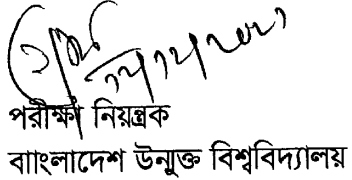 পরীক্ষা নিয়ন্ত্রক
বাাংলাদেশ উন্মুক্ত বিশ্ববিদ্যালয়